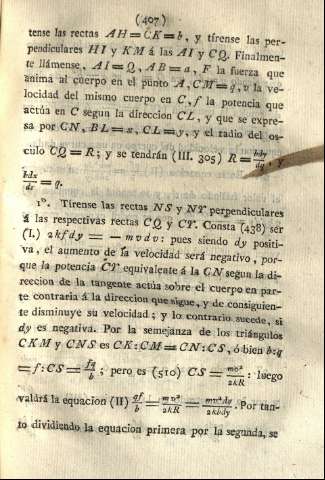 (407)
tense las rectas AH=CK=b, y tírense las per-
pendiculares HI y KM á las AI y CQ. Finalmen-
te llámense, AI=Q, AB=a, F la fuerza que
anima al cuerpo en el punto A, CM=q, v la ve-
locidad del mismo cuerpo en C, f la potencia que
actúa en C segun la direccion CL, y que se expre-
sa por CN, BL=x, CL=y, y el radio del os-
culo CQ=R; y se tendrán (III. 305) R=bdy/dq, y
bdx/ds = q.
1º. Tírense las rectas NS y NT perpendiculares
á las respectivas rectas CQ y CT. Consta (438) ser
(I.) 2kfdy = — mvdv: pues siendo dy positi-
va, el aumento de la velocidad será negativo, por-
que la potencia CT equivalente á la CN segun la di-
reccion de la tangente actúa sobre el cuerpo en par-
te contraria á la direccion que sigue, y de consiguien-
te disminuye su velocidad; y lo contrario sucede, si
dy es negativa. Por la semejanza de los triángulos
CKM y CNS es CK:CM=CN:CS, ó bien b:q
=f:CS=fq/b; pero es (510) CS=mv²/2kR: luego
valdrá la equacion (II) qf/b = mv²/2kR = mv²dq/2kbdy. Por tan-
to dividiendo la equacion primera por la segunda, se